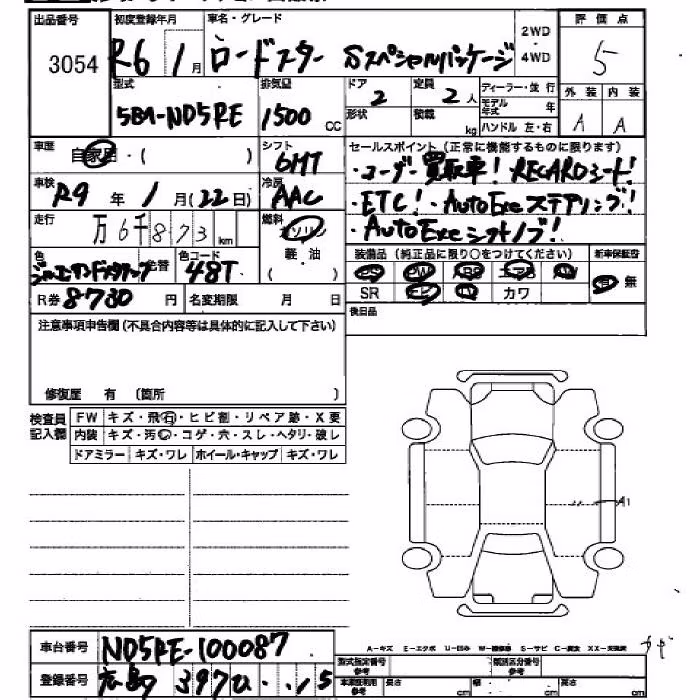 出品番号 初度登録年月 車名・グレード 2WD・4WD 評価点
3054 R6 1月 ロードスター Sスペシャルパッケージ 5
型式 排気量 ドア 定員 ディーラー・並行 外装 内装
5BA-ND5RE 1500 CC 2 2人 モデル年式 年 A A
形状 積載 kg ハンドル 左・右
車歴 自家用・( ) シフト 6MT
セールスポイント (正常に機能するものに限ります)
・ユーザー買取車! RECAROシート!
車検 R9年 1月(22日) 冷房 AAC
・ETC!・AutoExeステアリング!
・AutoExeシフトノブ!
走行 万6千873km 燃料 ガソリン 軽・油 ( )
装備品 (純正品に限り○をつけてください) 新車保証書
色 色替 色コード 48T
PS PW AB エアB AW 有 無
SR ナビ TV カワ
R券 8730円 名変期限 月 日 後日品
注意事項申告欄(不具合内容等は具体的に記入して下さい)
修復歴 有 (箇所 )
検査員記入欄 FW キズ・飛石・ヒビ割・リペア跡・X要
内装 キズ・汚・コゲ・穴・スレ・ヘタリ・破レ
ドアミラー キズ・ワレ ホイール・キャップ キズ・ワレ
A1
車台番号 ND5RE-100087
A-キズ E-エクボ U-凹み S-サビ
登録番号 広島 397 ひ ・・15
型式指定番号 参考 類別区分番号 参考
長さ cm 幅 cm 高さ cm